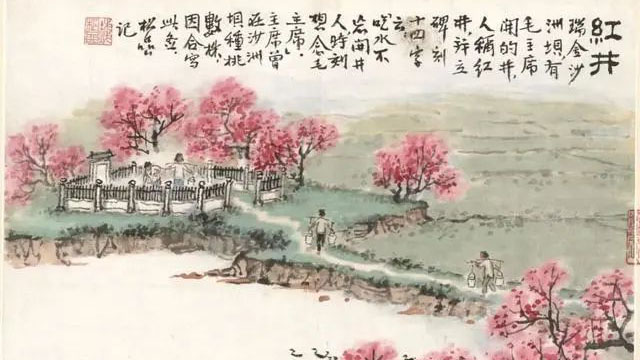 紅井
瑞金沙
洲壩有
毛主席
開的井
人稱紅
井并立
碑刻
十四字
云
吃水不
忘開井
人時刻
想念毛
主席
主席曾
在沙洲
壩種桃
數株
因合寫
此
松喦
記